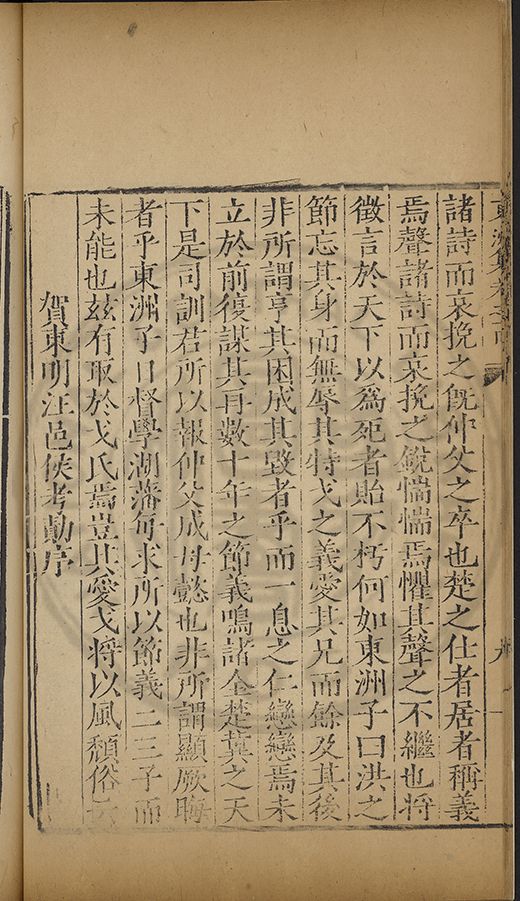 諸詩而哀挽之旣仲父之卒也楚之仕者居者稱義
焉聲諸詩而哀挽之銳惴惴焉懼其聲之不繼也將
徵言於天下以爲死者貽不朽何如東洲子曰洪之
節忘其身而無辱其特戈之義愛其兄而餘及其後
非所謂亨其困成其毀者乎而一息之仁戀戀焉未
立於前復謀其再數十年之節義鳴諸全楚冀之天
下是司訓君所以報仲父成母懿也非所謂顯厥晦
者乎東洲子日督學湖藩每求所以節義二三子而
未能也玆有取於戈氏焉豈其愛戈將以風頹俗云
賀東明汪邑侯考勳序